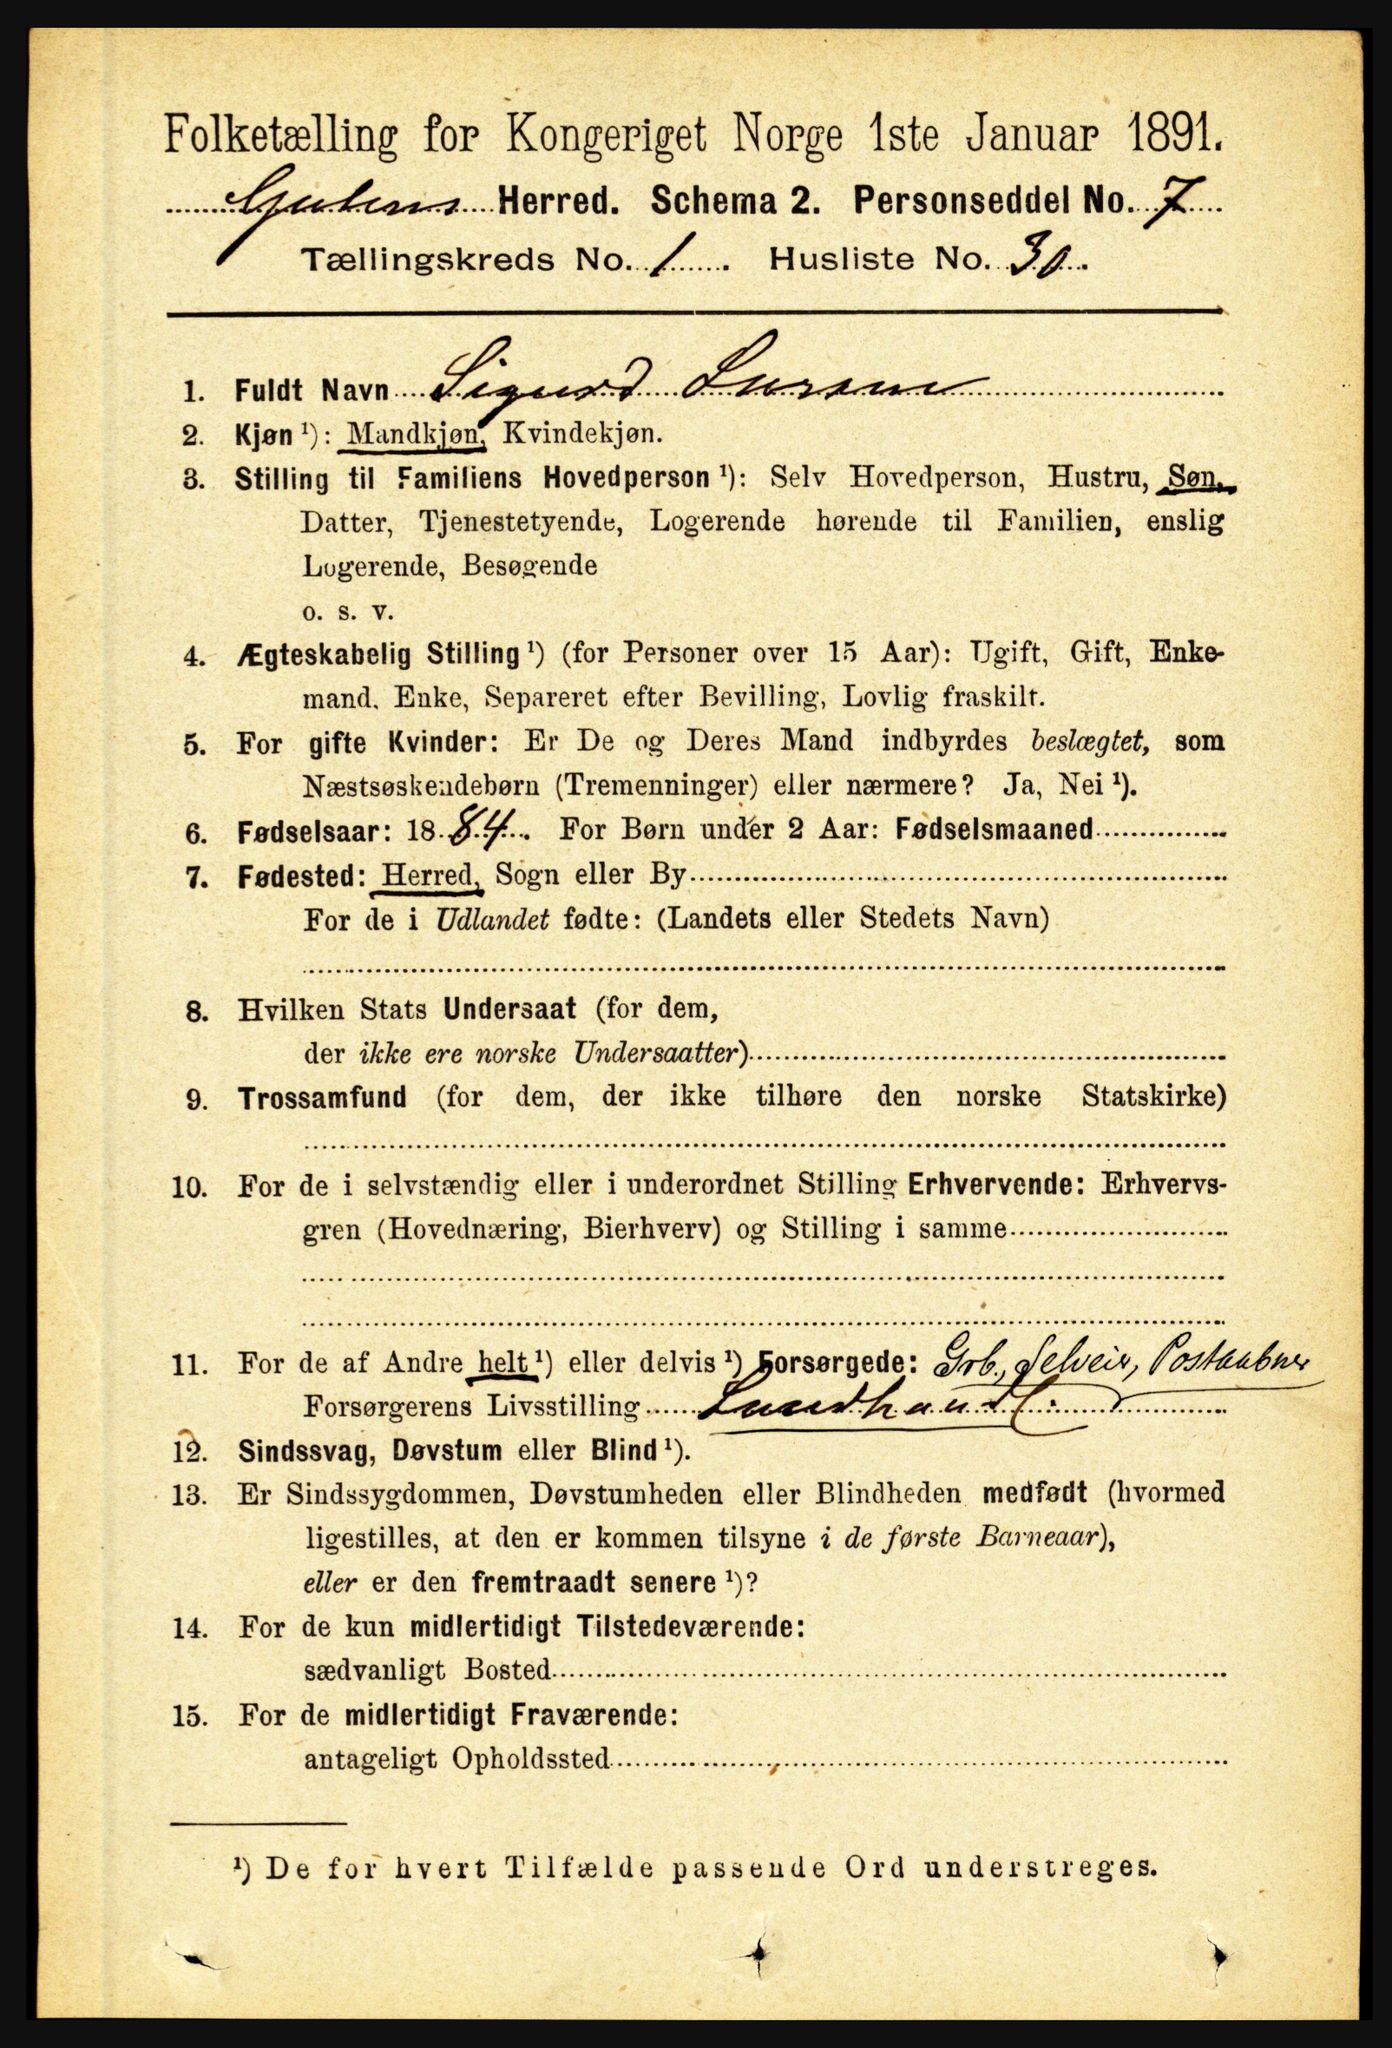 Folketælling for Kongeriget Norge 1ste Januar 1891.
Gulens Herred. Schema 2. Personseddel No. 7
Tællingskreds No. 1. Husliste No. 30.
1. Fuldt Navn Sigurd Larsen
2. Kjøn ¹): Mandkjøn, Kvindekjøn.
3. Stilling til Familiens Hovedperson ¹): Selv Hovedperson, Hustru, Søn,
Datter, Tjenestetyende, Logerende hørende til Familien, enslig
Logerende, Besøgende
o. s. v.
4. Ægteskabelig Stilling ¹) (for Personer over 15 Aar): Ugift, Gift, Enke-
mand, Enke, Separeret efter Bevilling, Lovlig fraskilt.
5. For gifte Kvinder: Er De og Deres Mand indbyrdes beslægtet, som
Næstsøskendebørn (Tremenninger) eller nærmere? Ja, Nei ¹).
6. Fødselsaar: 1884. For Børn under 2 Aar: Fødselsmaaned
7. Fødested: Herred, Sogn eller By
For de i Udlandet fødte: (Landets eller Stedets Navn)
8. Hvilken Stats Undersaat (for dem,
der ikke ere norske Undersaatter)
9. Trossamfund (for dem, der ikke tilhøre den norske Statskirke)
10. For de i selvstændig eller i underordnet Stilling Erhvervende: Erhvervs-
gren (Hovednæring, Bierhverv) og Stilling i samme
11. For de af Andre helt ¹) eller delvis ¹) Forsørgede: Grb., Selveier, Postaabner
Forsørgerens Livsstilling Landhandl.
12. Sindssvag, Døvstum eller Blind ¹).
13. Er Sindssygdommen, Døvstumheden eller Blindheden medfødt (hvormed
ligestilles, at den er kommen tilsyne i de første Barneaar),
eller er den fremtraadt senere ¹)?
14. For de kun midlertidigt Tilstedeværende:
sædvanligt Bosted
15. For de midlertidigt Fraværende:
antageligt Opholdssted
¹) De for hvert Tilfælde passende Ord understreges.